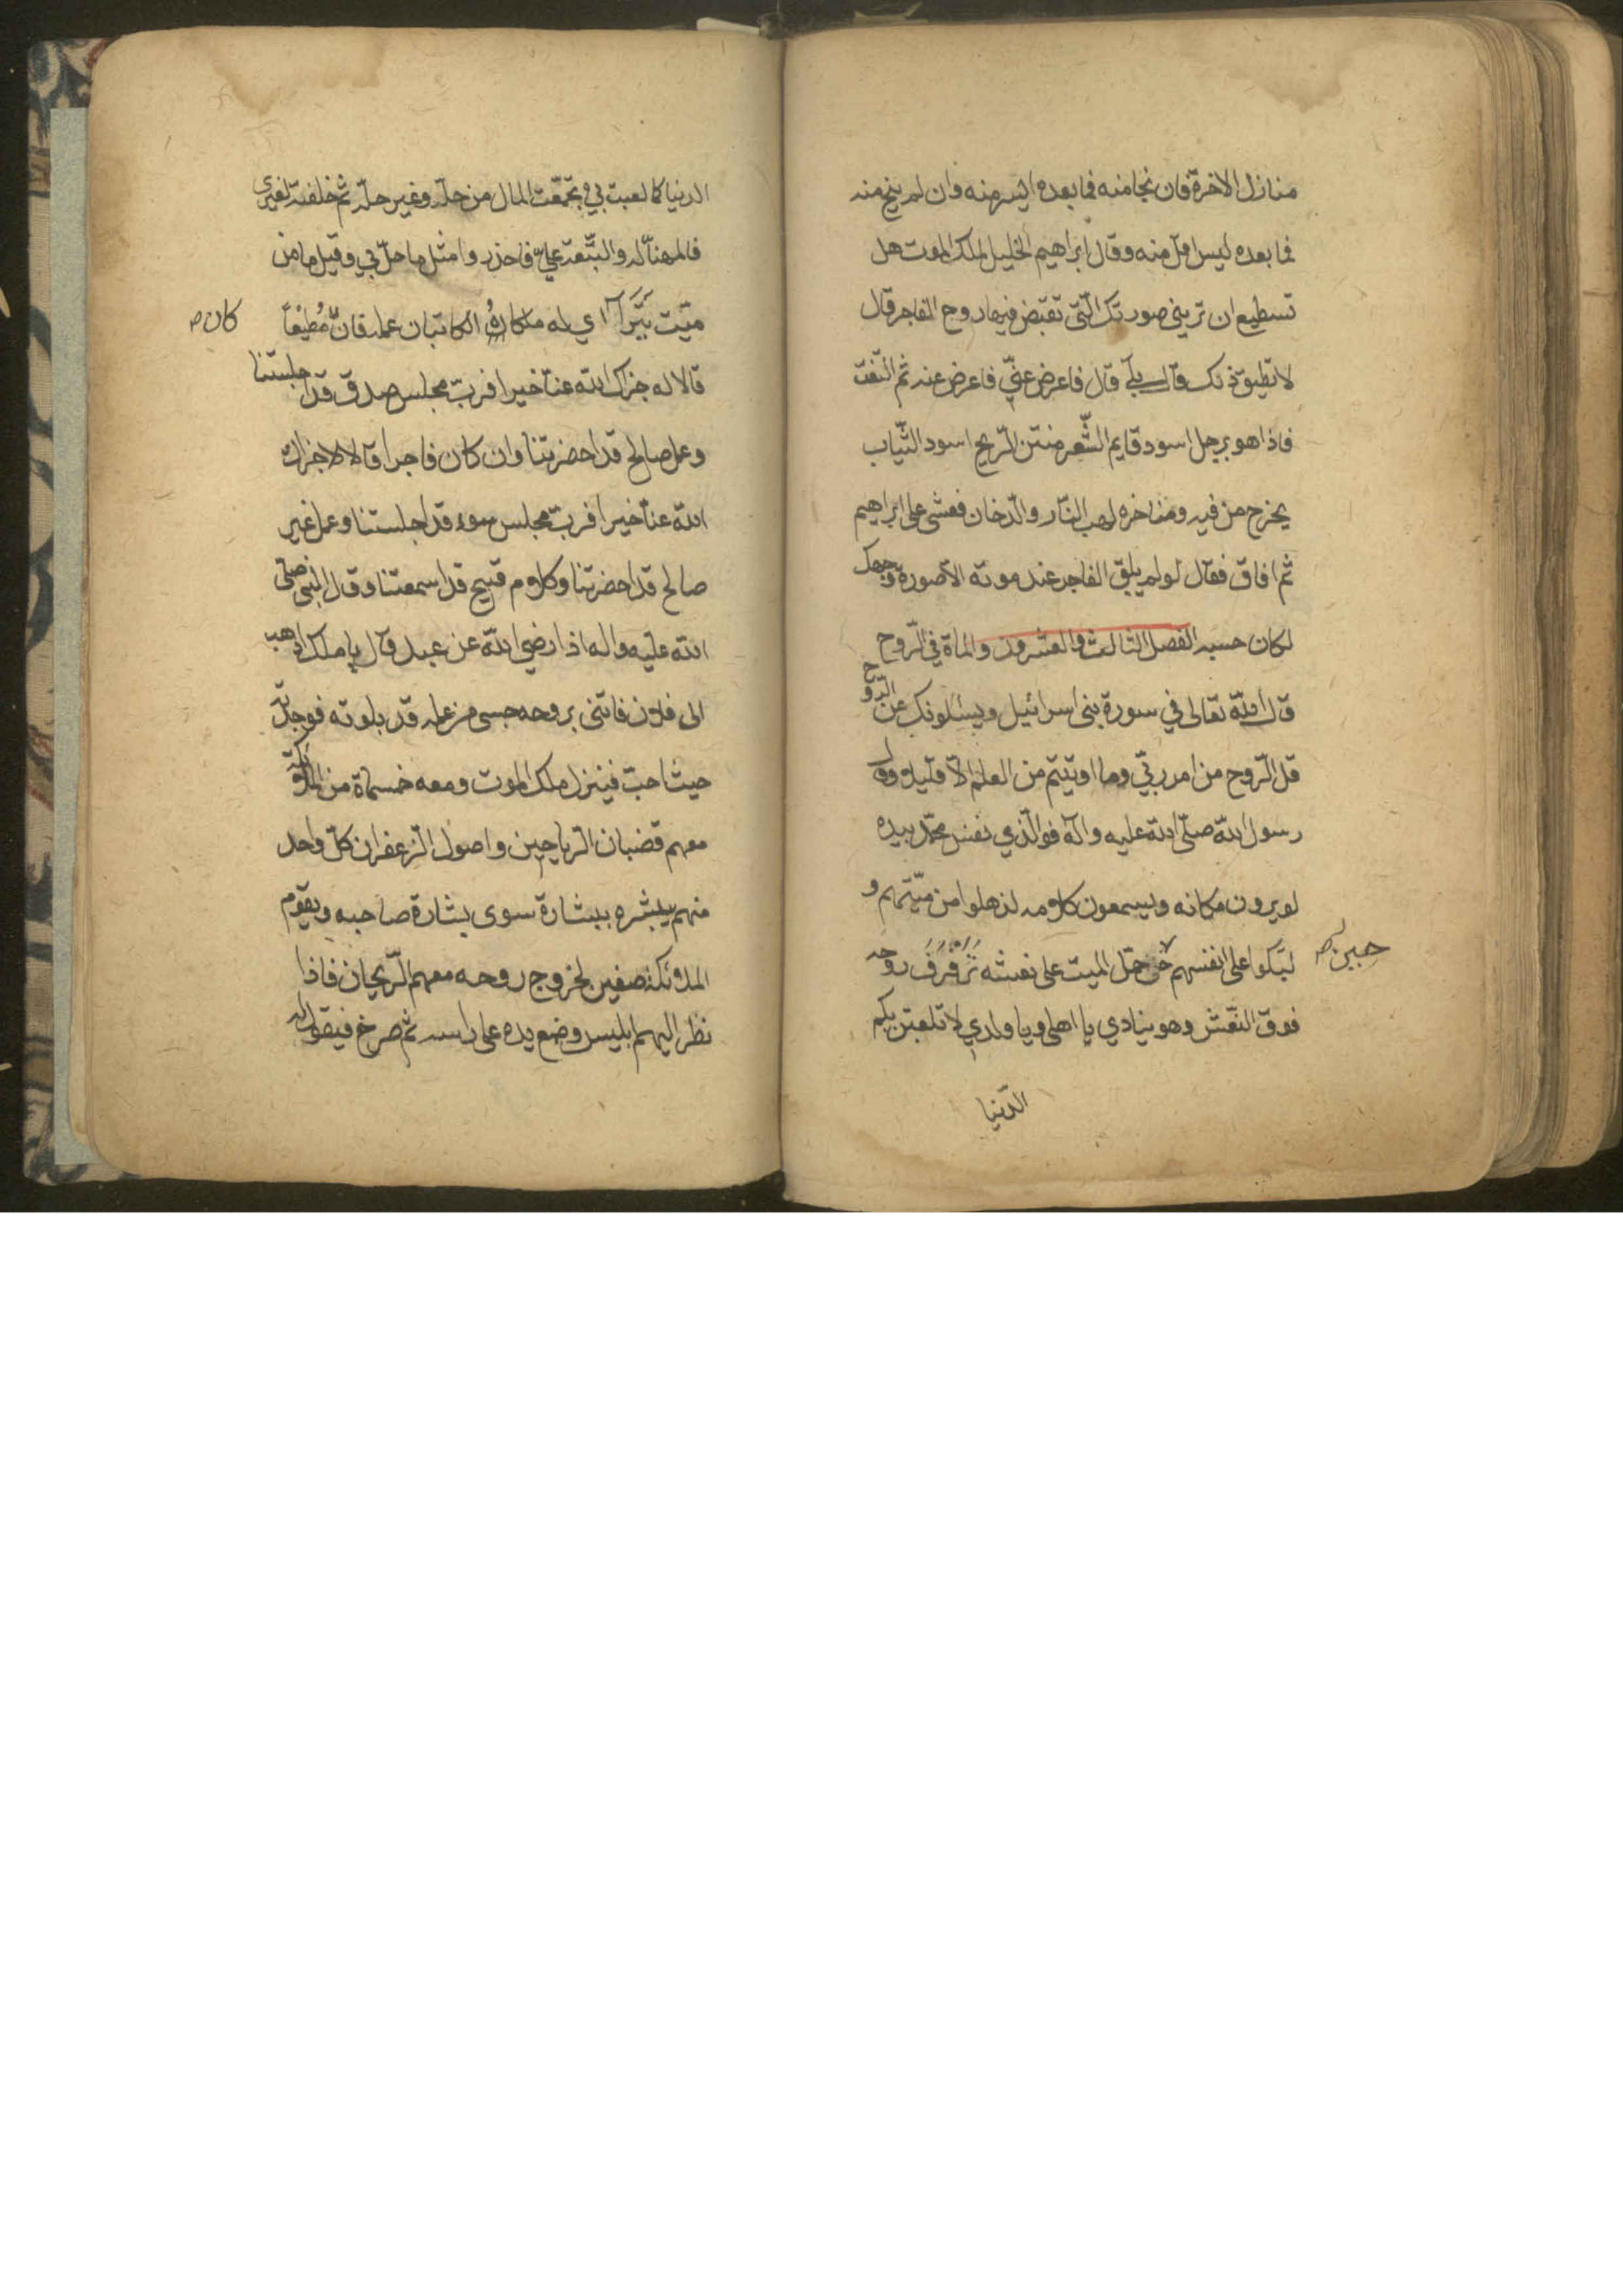 منازل الاخرة فان نجا منه فما بعده ايسر منه وان لم ينج منه
فما بعده ليس اقل منه وقال ابراهيم الخليل لملك الموت هل
تستطيع ان تريني صورتك الّتي تقبض فيها روح الفاجر قال
لا تطيق ذلك قال بلى قال فاعرض عنّي فاعرض عنه ثم التفت
فاذا هو برجل اسود قايم الشّعر منتن الرّيح اسود الثّياب
يخرج من فيه ومناخره لهب النّار والدّخان فغشى على ابراهيم
ثم افاق فقال لو لم يلق الفاجر عند موته الّا صورة وجهك
لكان حسبه الفصل الثالث والعشرون والمأة في الرّوح
قال الله تعالى في سورة بني اسرائيل ويسئلونك عن الرّوح
قل الرّوح من امر ربّي وما اوتيتم من العلم الّا قليلا وقال
رسول الله صلّى الله عليه وآله فوالّذي نفس محمّد بيده
لو يرون مكانه ويسمعون كلامه لذهلوا من ميّتهم و
لبكوا على انفسهم حتى حمّل الميت على نعشه تُرَفْرِفُ روحه
حين ص
فوق النّعش وهو ينادي يا اهلي ويا ولدي لا تلعبن بكم
الدّنيا
الدنيا كما لعبت بي جمّعت المال من حلّه وغير حلّه ثم خلفته لغيري
فالمهنأ له والتّبعة عليّ فاحذروا مثل ما حلّ بي وقيل ما من
ميّت يتَرَآأى له ملكاه الكاتبان عمله فان مُطيعًا
كان ص
قالا له جزاك الله عنّا خيرا فربّ مجلس صدق قد اجلستنا
وعمل صالح قد احضرتنا وان كان فاجرا قالا لا جزاك
الله عنّا خيرا فربّ مجلس سوء قد اجلستنا وعمل غير
صالح قد احضرتنا وكلام قبيح قد اسمعتنا وقال النبي صلّى
الله عليه واله اذا رضي الله عن عبد قال يا ملك اذهب
الى فلان فاتني بروحه حسبي من عمله قد بلوته فوجدته
حيث احبّ فينزل ملك الموت ومعه خمسماة من الملائكة
معهم قضبان الرياحين واصول الزعفران كلّ واحد
منهم يبشره ببشارة سوى بشارة صاحبه ويقوم
الملائكة صفين لخروج روحه معهم الرّيحان فاذا
نظر اليهم ابليس وضع يده على راسه ثم صرخ فيقول له